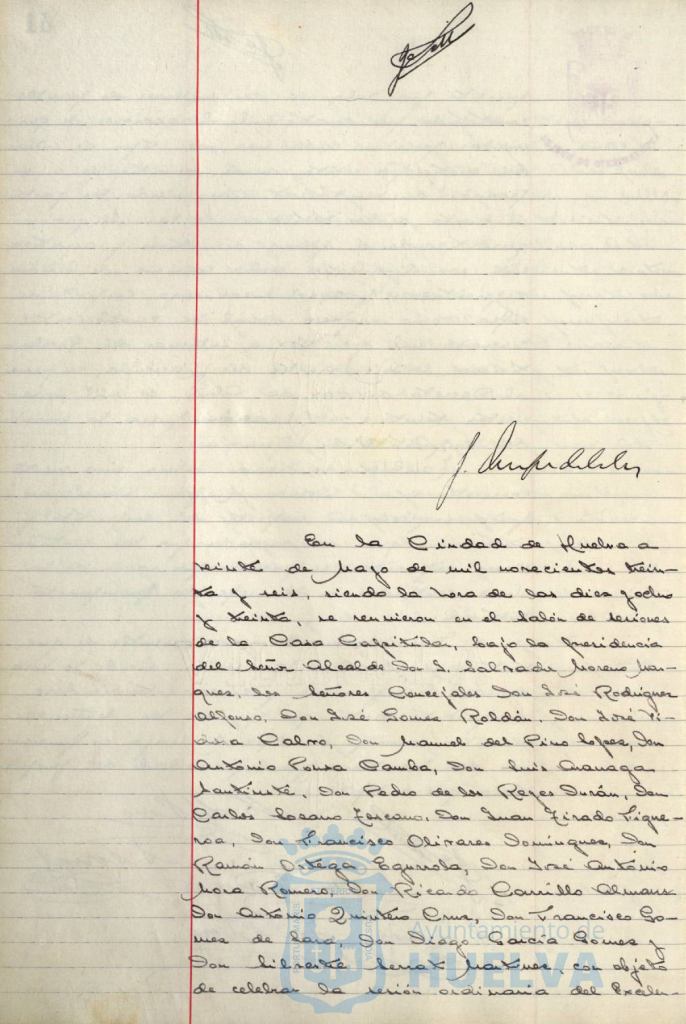 En la Ciudad de Huelva a
veinte de Mayo de mil novecientos trein-
ta y seis, siendo la hora de las diez y ocho
y treinta, se reunieron en el Salón de sesiones
de la Casa Capitular, bajo la presidencia
del Señor Alcalde Don S. Salvador Moreno Mar-
quez, los Señores Concejales Don José Rodríguez
Alfonso, Don José Gomez Roldán, Don José
Calvo, Don Manuel del Pino Lopez, Don
Antonio Ponsa Camba, Don Luis
Don Pedro de los Reyes Durán, Don
Carlos Lozano Don Juan Tirado Figue-
roa, Don Francisco Olivares Domínguez, Don
Ramón Ortega Don José Antonio
Mora Romero, Don Ricardo Carrillo
Don Antonio Quintero Cruz, Don Francisco Go-
mez de Don Diego García Gomez y
Don Silvestre Serrat Martinez, con objeto
de celebrar la sesión ordinaria del Excelen-
Ayuntamiento de
HUELVA